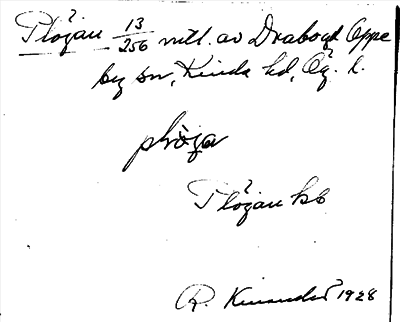 Plöjan 13/256 mtl. av Drabogt Oppe
by sn, Kinda hd, Ög. l.
plöȷa
Plöjan hb
R. Kinander 1928